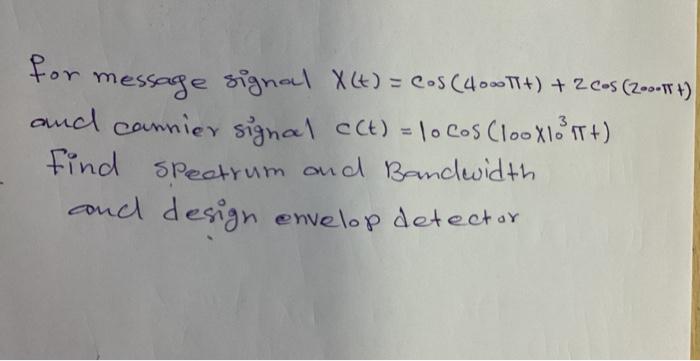 for message signal X(t) = cos(4000πt) + 2cos(2000πt)
and carrier signal c(t) = 10 cos(100x10³πt)
find spectrum and Bandwidth
and design envelop detector